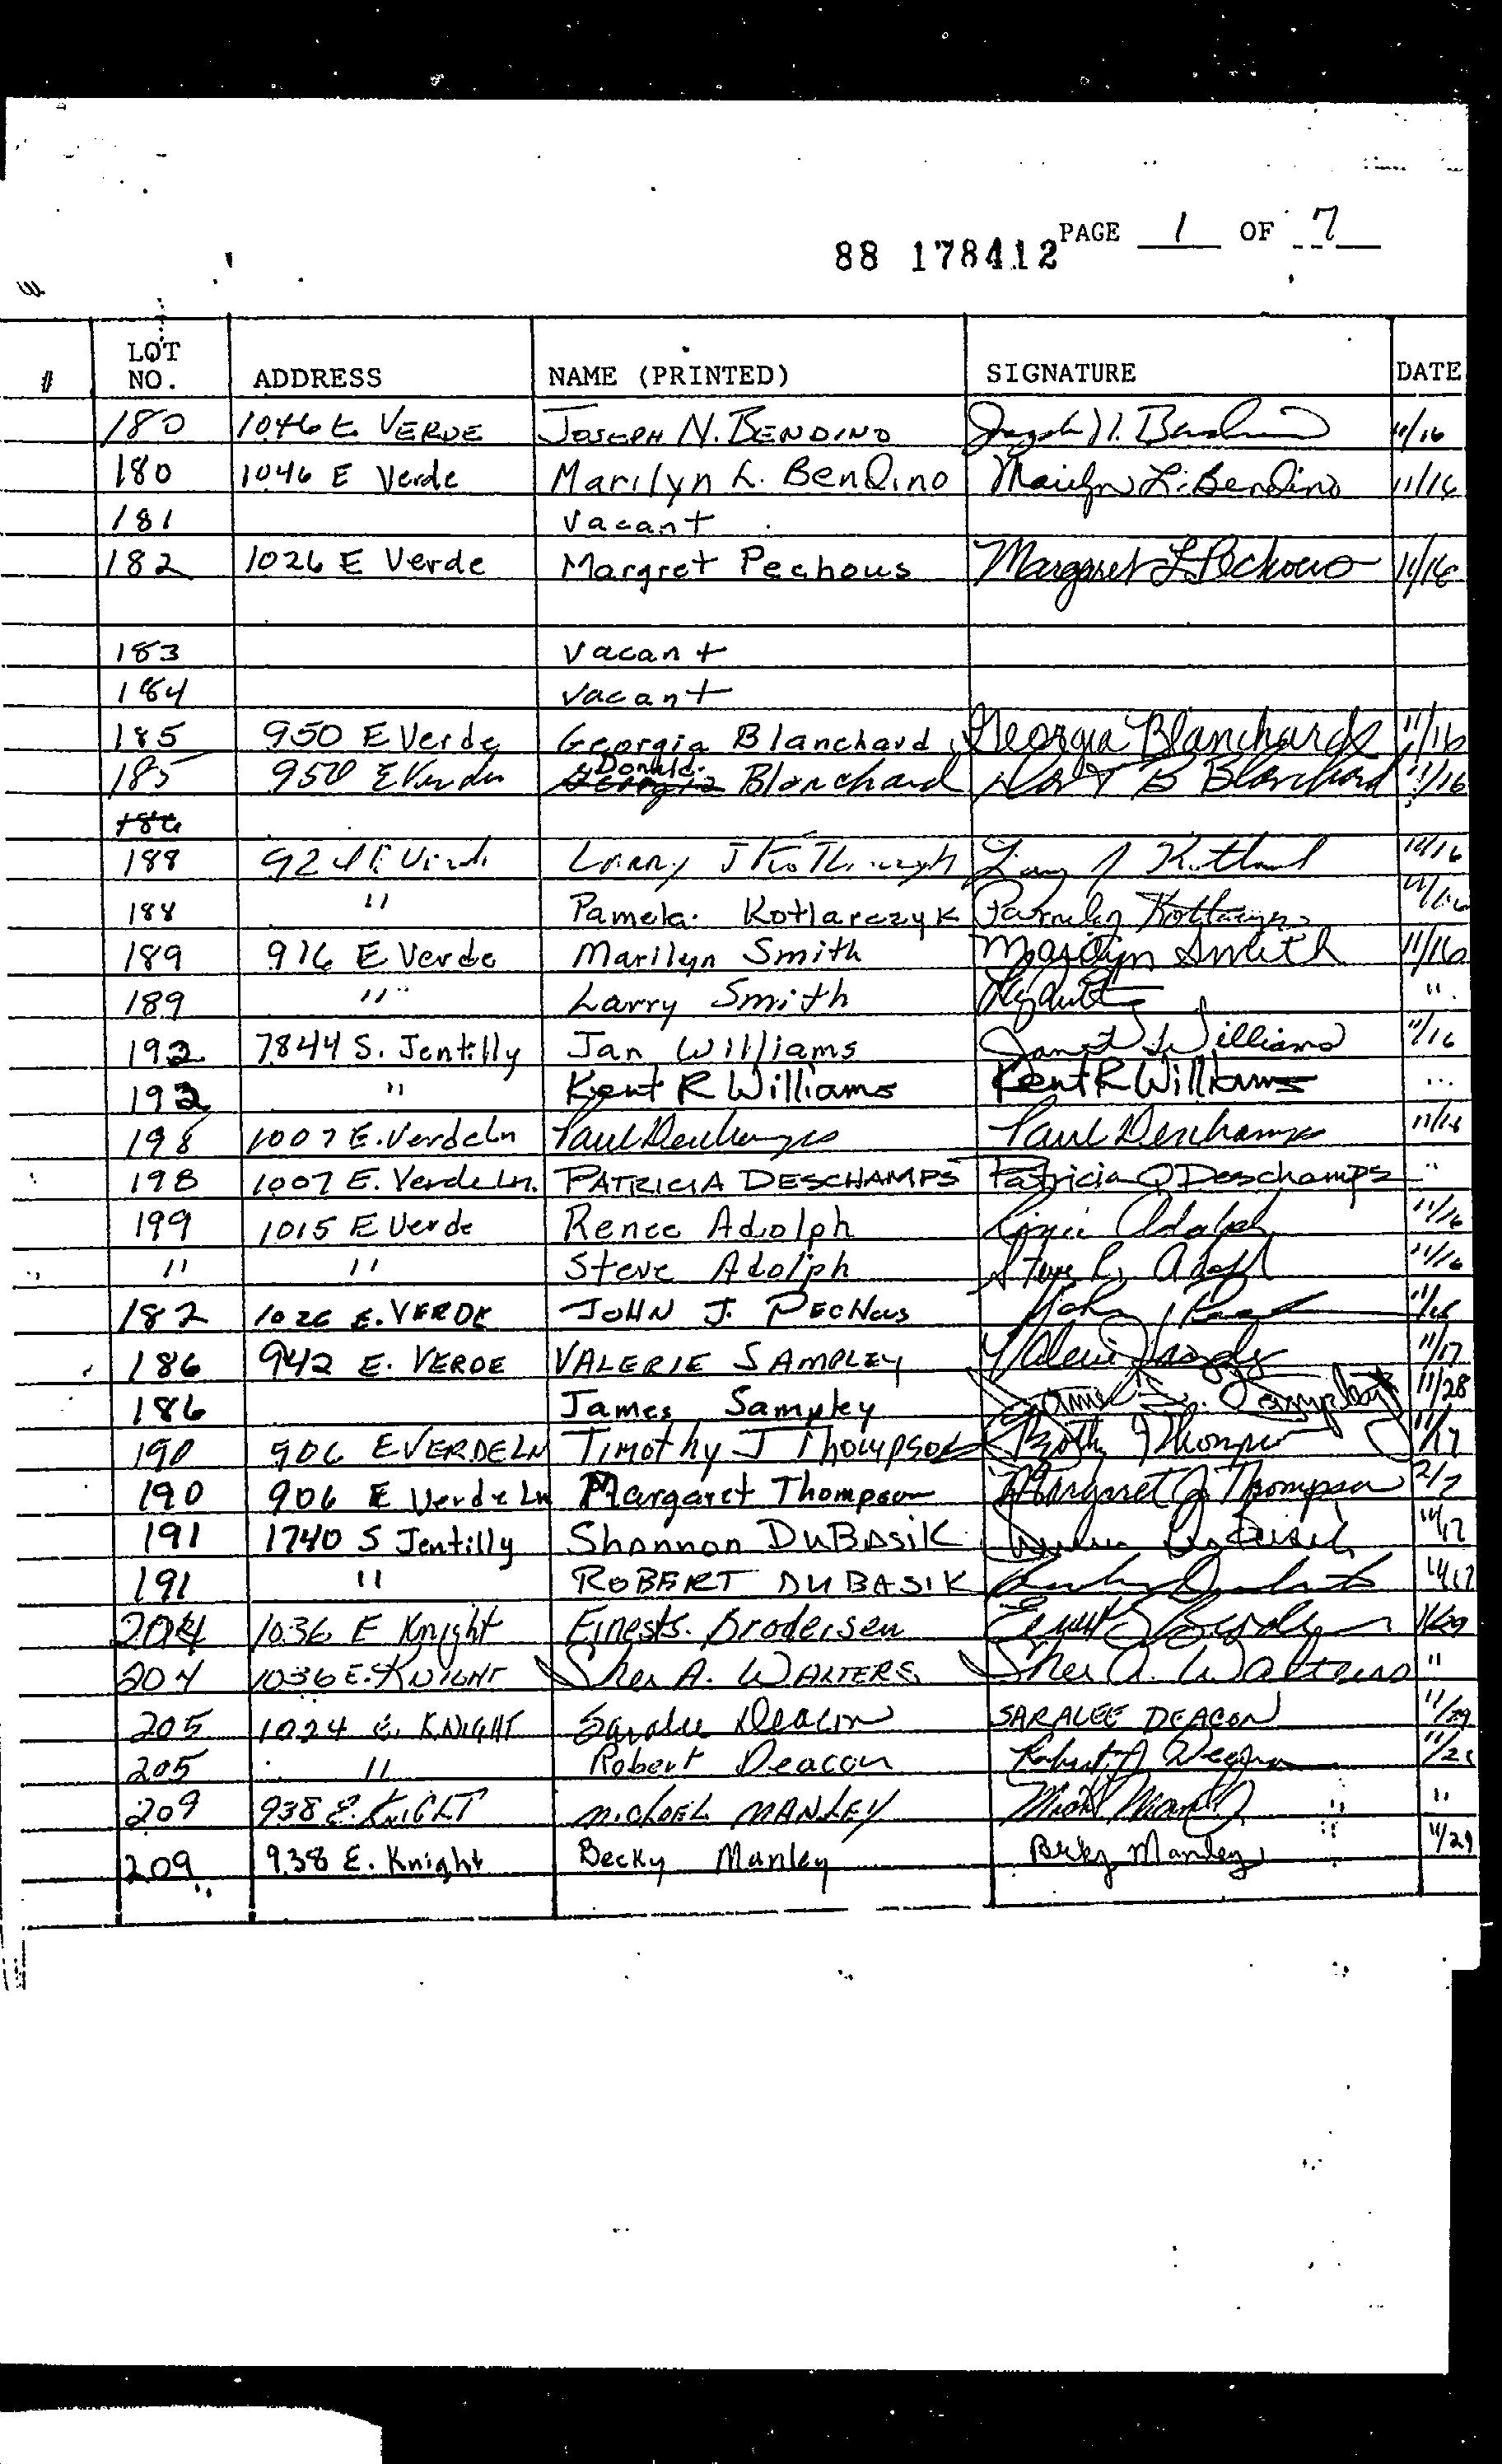 PAGE 1 OF 7
88 178412
# LOT NO. ADDRESS NAME (PRINTED) SIGNATURE DATE
180 1046 E VERDE JOSEPH N. BENDINO Joseph N. Bendino 11/16
180 1046 E Verde Marilyn L. Bendino Marilyn L. Bendino 11/16
181 Vacant
182 1026 E Verde Margret Pechous Margaret L Pechous 11/16
183 Vacant
184 Vacant
185 950 E Verde Georgia Blanchard Georgia Blanchard 11/16
185 950 E Verde Georgia Donald Blanchard B Blanchard 11/16
186
188 924 E Verde Larry J 11/16
188 " Pamela Kotlarczyk Pamela Kotlarczyk 11/16
189 916 E Verde Marilyn Smith Marilyn Smith 11/16
189 " Larry Smith "
192 7844 S. Jentilly Jan Williams Janet Williams 11/16
192 " Kent R Williams Kent R Williams
198 1007 E. Verde Ln Paul Deschamps Paul Deschamps 11/16
198 1007 E. Verde Ln. PATRICIA DESCHAMPS Patricia Deschamps "
199 1015 E Verde Renee Adolph Renee Adolph 11/16
" " Steve Adolph Steve Adolph 11/16
182 1026 E. VERDE JOHN J. PECHOUS John 11/16
186 942 E. VERDE VALERIE SAMPLEY Valerie Sampley 11/17
186 James Sampley James Sampley 11/28
190 906 E VERDE LN Timothy J Thompson Thompson 11/17
190 906 E Verde Ln Margaret Thompson Margaret J Thompson 2/7
191 1740 S Jentilly Shannon DuBasik 11/17
191 " ROBERT DUBASIK 11/17
204 1036 E Knight Ernest S. Brodersen 11/29
204 1036 E. KNIGHT Sher A. WALTERS Sher A. Walters "
205 1024 E. KNIGHT Saralee Deacon SARALEE DEACON 11/29
205 " Robert Deacon Robert Deacon
209 938 E. KNIGHT MICHAEL MANLEY "
209 938 E. Knight Becky Manley Becky Manley 11/29